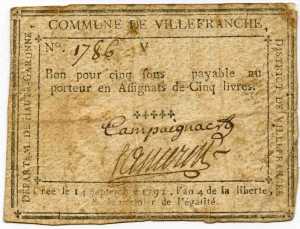 COMMUNE DE VILLEFRANCHE,
No. 1786 V
Bon pour cinq sous payable au
porteur en Assignats de Cinq livres.
Campacgnac
Créée le 14 Septembre 1792. l'an 4 de la liberté
& le premier de l'égalité.
DÉPARTEM. DE HAUTE-GARONNE,
DISTRICT DE VILLEFRANCHE